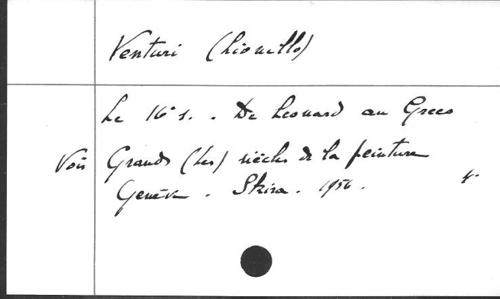 Venturi (Lionello)
Le 16e s. . De Leonard au Greco
Voir Grands (Les) siècles de la peinture
Genève . Skira . 1956. 4°